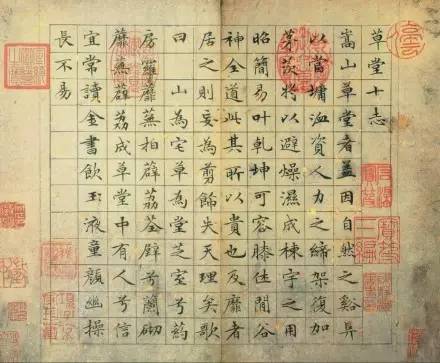 草堂十志
嵩山草堂者盖因自然之谿阜
以當墉洫資人力之締架復加
茅茨將以避燥濕成棟宇之用
昭簡易叶乾坤可容膝休閒谷
神全道此其所以貴也及靡者
居之則妄為剪餙失天理矣歌
曰山為宅草為堂芝室兮藥
房羅蘼蕪拍薜荔荃壁兮蘭砌
蘼蕪薜荔成草堂中有人兮信
宜常讀金書飲玉液童顏幽操
長不易